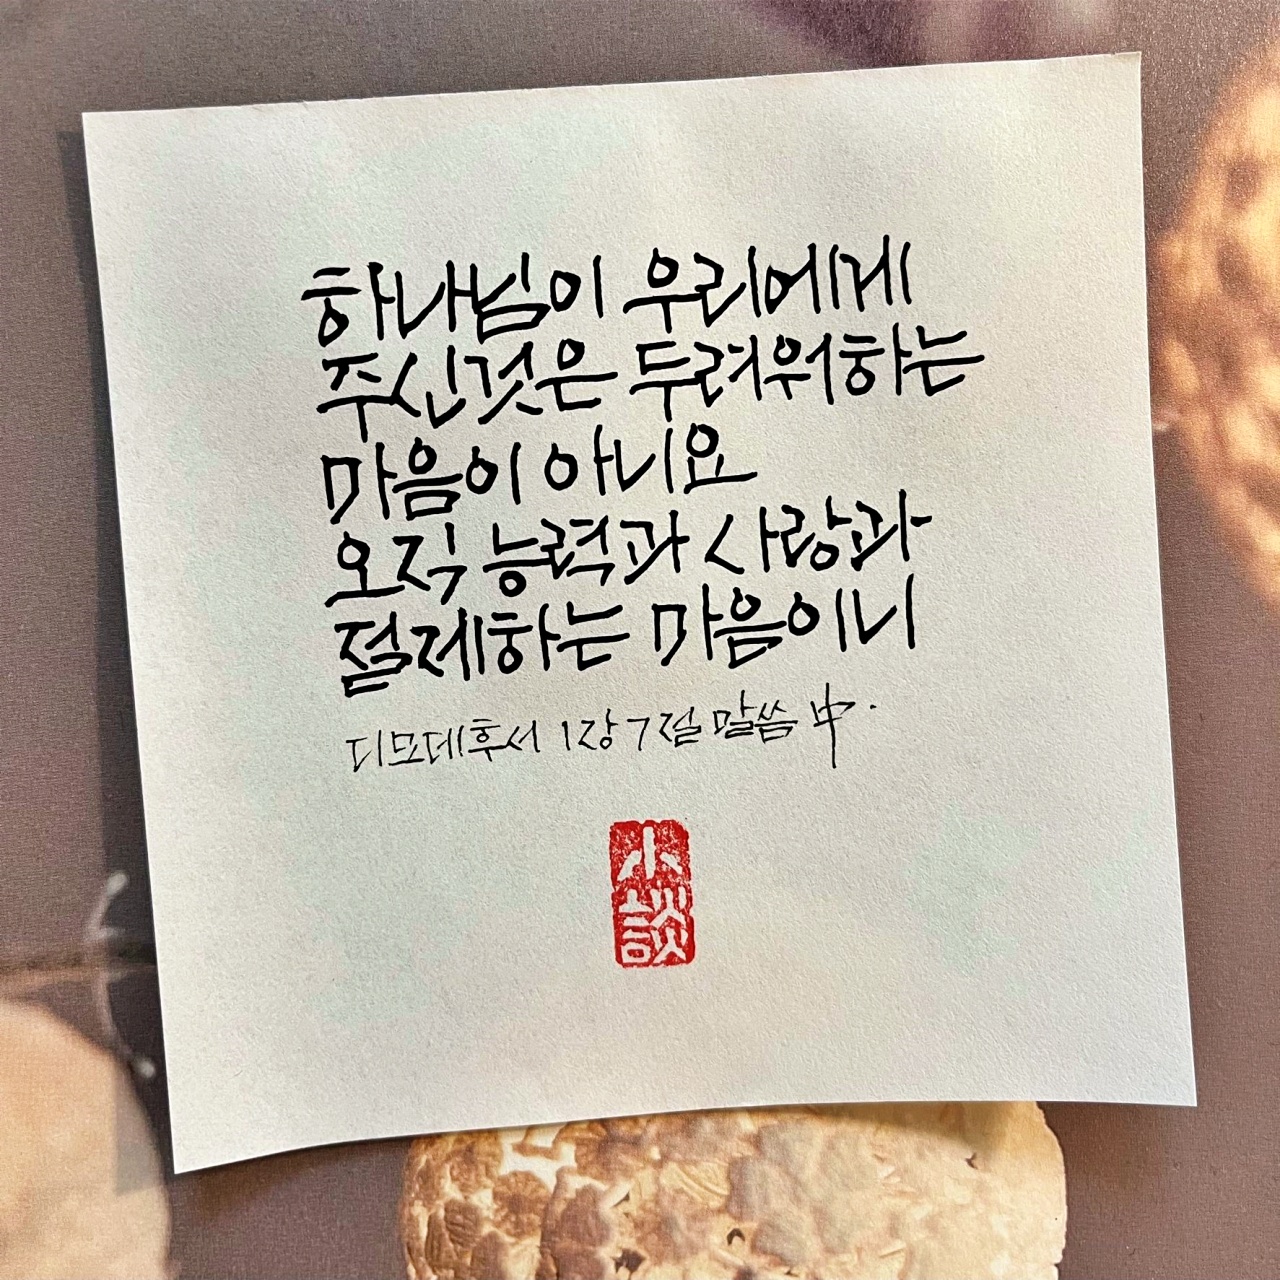 하나님이 우리에게
주신것은 두려워하는
마음이 아니요
오직 능력과 사랑과
절제하는 마음이니
디모데후서 1장7절 말씀 中.
小
談